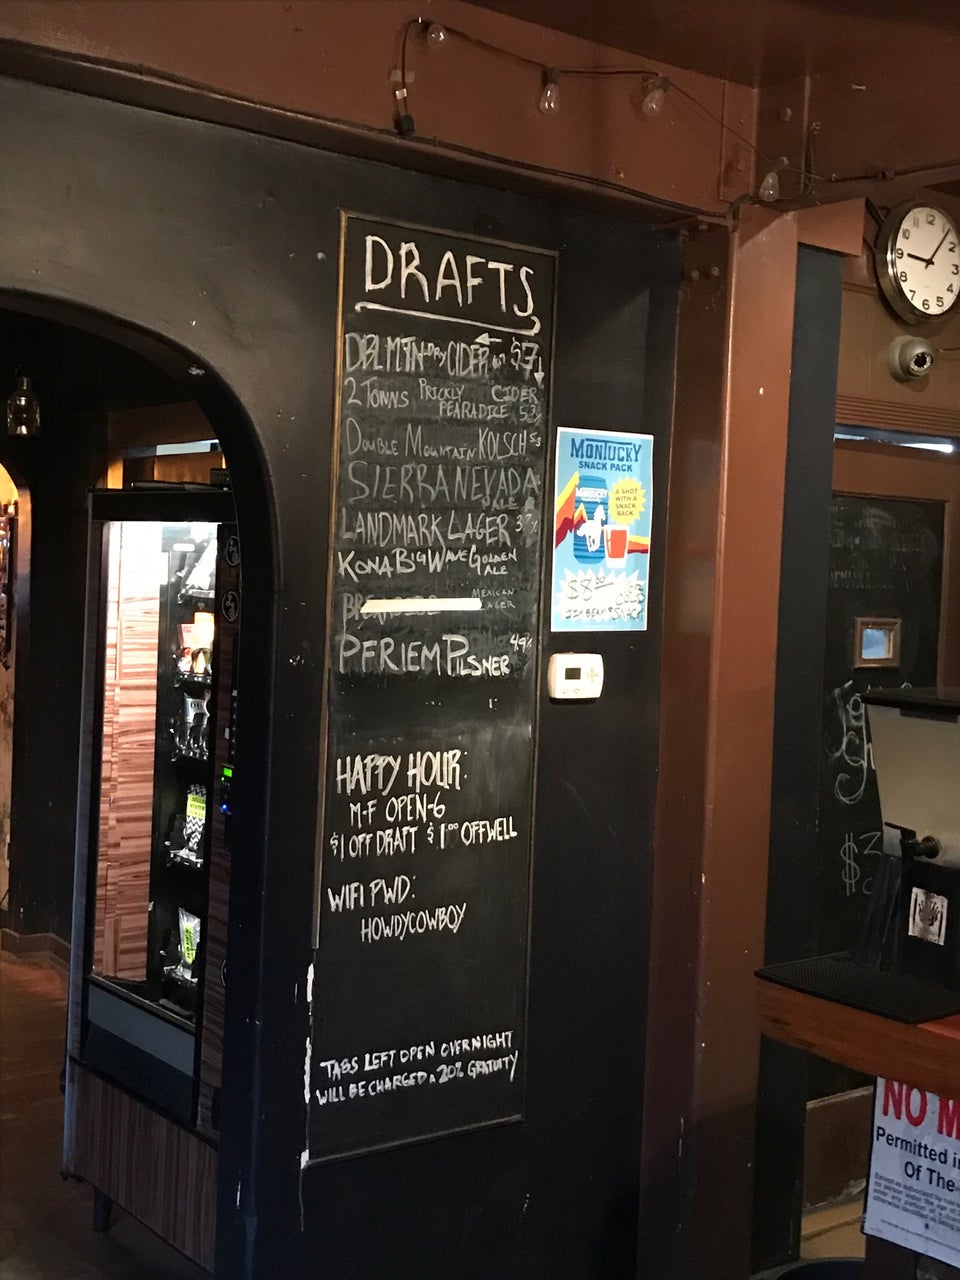 DRAFTS
DBL MTN DRY CIDER $7
2 TOWNS PRICKLY PEARADICE CIDER
DOUBLE MOUNTAIN KOLSCH
SIERRA NEVADA
ALE
LANDMARK LAGER
KONA BIG WAVE GOLDEN ALE
MEXICAN LAGER
PFRIEM PILSNER 4.9%
HAPPY HOUR:
M-F OPEN-6
$1 OFF DRAFT $1.00 OFF WELL
WIFI PWD:
HOWDYCOWBOY
TABS LEFT OPEN OVERNIGHT
WILL BE CHARGED A 20% GRATUITY
MONTUCKY
SNACK PACK
A SHOT
WITH A
SNACK
BACK
$8.00
JIM BEAM &
12 1 2 3 4 5 6 7 8 9 10
NO M
Permitted i
Of The